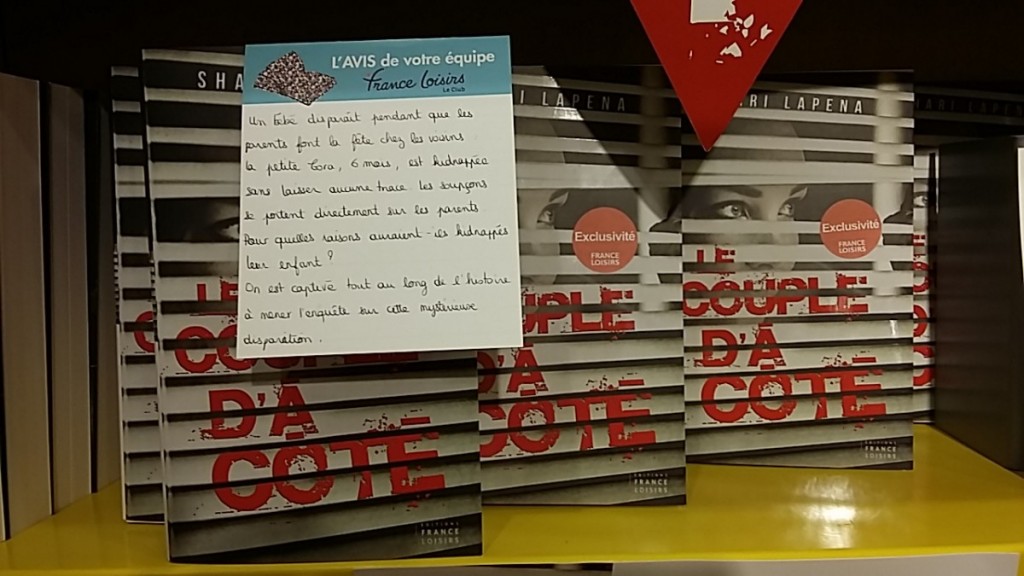 L'AVIS de votre équipe
France Loisirs
Le Club
Un bébé disparaît pendant que les
parents font la fête chez les voisins
la petite Cora, 6 mois, est kidnappée
sans laisser aucune trace. les soupçons
se portent directement sur les parents.
Pour quelles raisons auraient-ils kidnappés
leur enfant?
On est captivé tout au long de l'histoire
à mener l'enquête sur cette mystérieuse
disparation.
SHA
LE
D'À
CÔTÉ
ÉDITIONS
FRANCE
LOISIRS
I LAPENA
Exclusivité
FRANCE
LOISIRS
UPLE
D'À
CÔTÉ
ÉDITIONS
FRANCE
LOISIRS
ARI LAPENA
Exclusivité
FRANCE
LOISIRS
LE
COUPLE
D'À
CÔTÉ
ÉDITIONS
FRANCE
LOISIRS